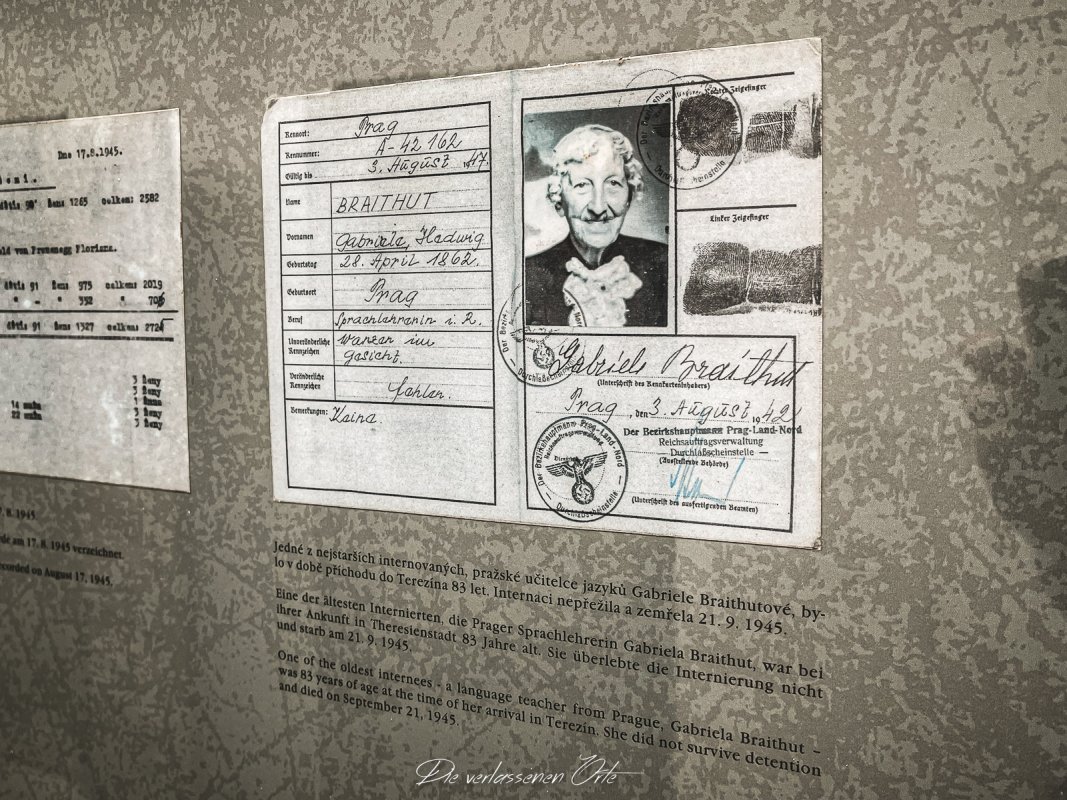 Dne 17.8.1945.
1265 celkem: 2582
975 celkem: 2019
352
1327 celkem:
3 ženy
3 ženy
3 ženy
3 ženy
8. 1945
am 17. 8. 1945 verzeichnet.
recorded on August 17, 1945.
Kennort: Prag
Kennummer: A-42 162
Gültig bis 3. August 1947.
Name BRAITHUT
Vornamen Gabriele, Hedwig
Geburtstag 28. April 1862.
Geburtsort Prag
Beruf Sprachlehrerin i. R.
Unveränderliche Kennzeichen Warzen im Gesicht.
Veränderliche Kennzeichen fehlen.
Bemerkungen: Keine.
Rechter Zeigefinger
Linker Zeigefinger
Gabriele Braithut
(Unterschrift des Kennkarteninhabers)
Prag, den 3. August 1942
Der Bezirkshauptmann Prag-Land-Nord
Reichsauftragsverwaltung
— Durchlaßscheinstelle —
(Ausstellende Behörde)
(Unterschrift des ausfertigenden Beamten)
Der Bezirkshauptmann Prag-Land-Nord
Reichsauftragsverwaltung
Durchlaßscheinstelle
Jedné z nejstarších internovaných, pražské učitelce jazyků Gabriele Braithutové, by-
lo v době příchodu do Terezína 83 let. Internaci nepřežila a zemřela 21. 9. 1945.
Eine der ältesten Internierten, die Prager Sprachlehrerin Gabriela Braithut, war bei
ihrer Ankunft in Theresienstadt 83 Jahre alt. Sie überlebte die Internierung nicht
und starb am 21. 9. 1945.
One of the oldest internees - a language teacher from Prague, Gabriela Braithut –
was 83 years of age at the time of her arrival in Terezín. She did not survive detention
and died on September 21, 1945.
Die verlassenen Orte